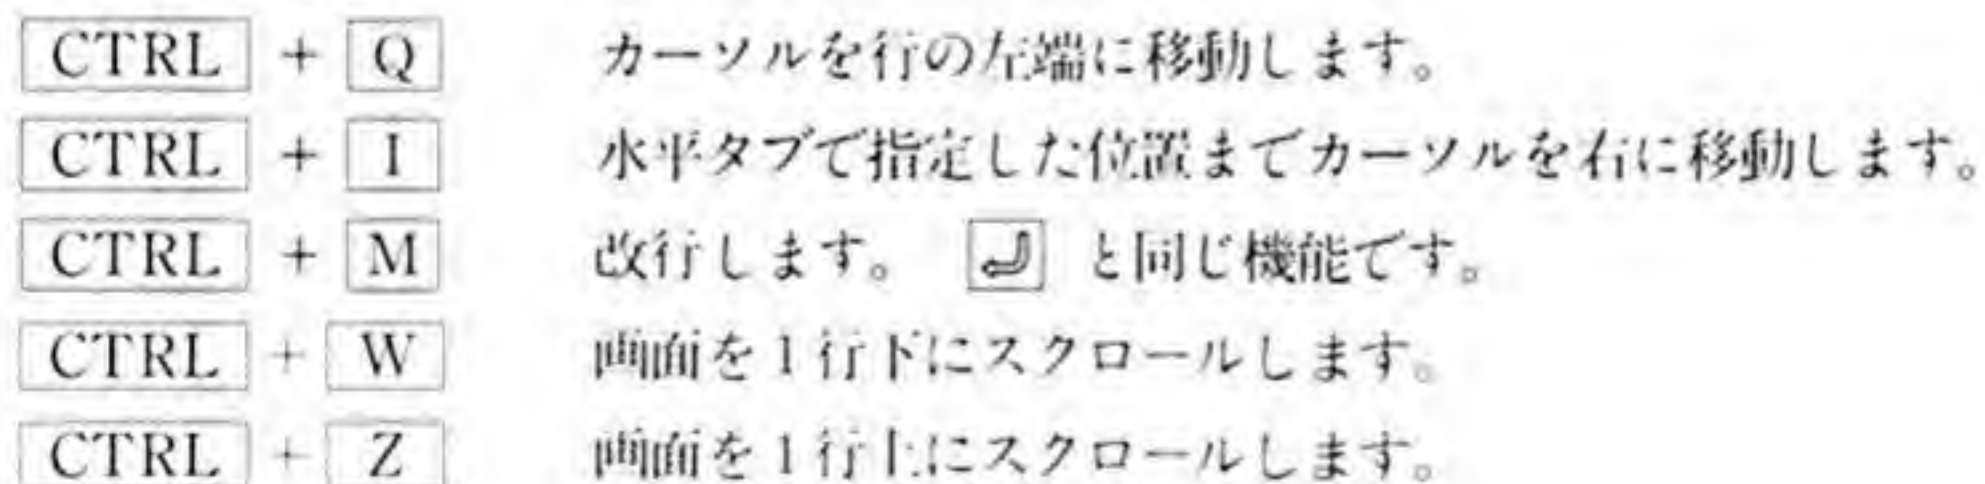 CTRL + Q カーソルを行の左端に移動します。
CTRL + I 水平タブで指定した位置までカーソルを右に移動します。
CTRL + M 改行します。 ↵ と同じ機能です。
CTRL + W 画面を1行下にスクロールします。
CTRL + Z 画面を1行上にスクロールします。